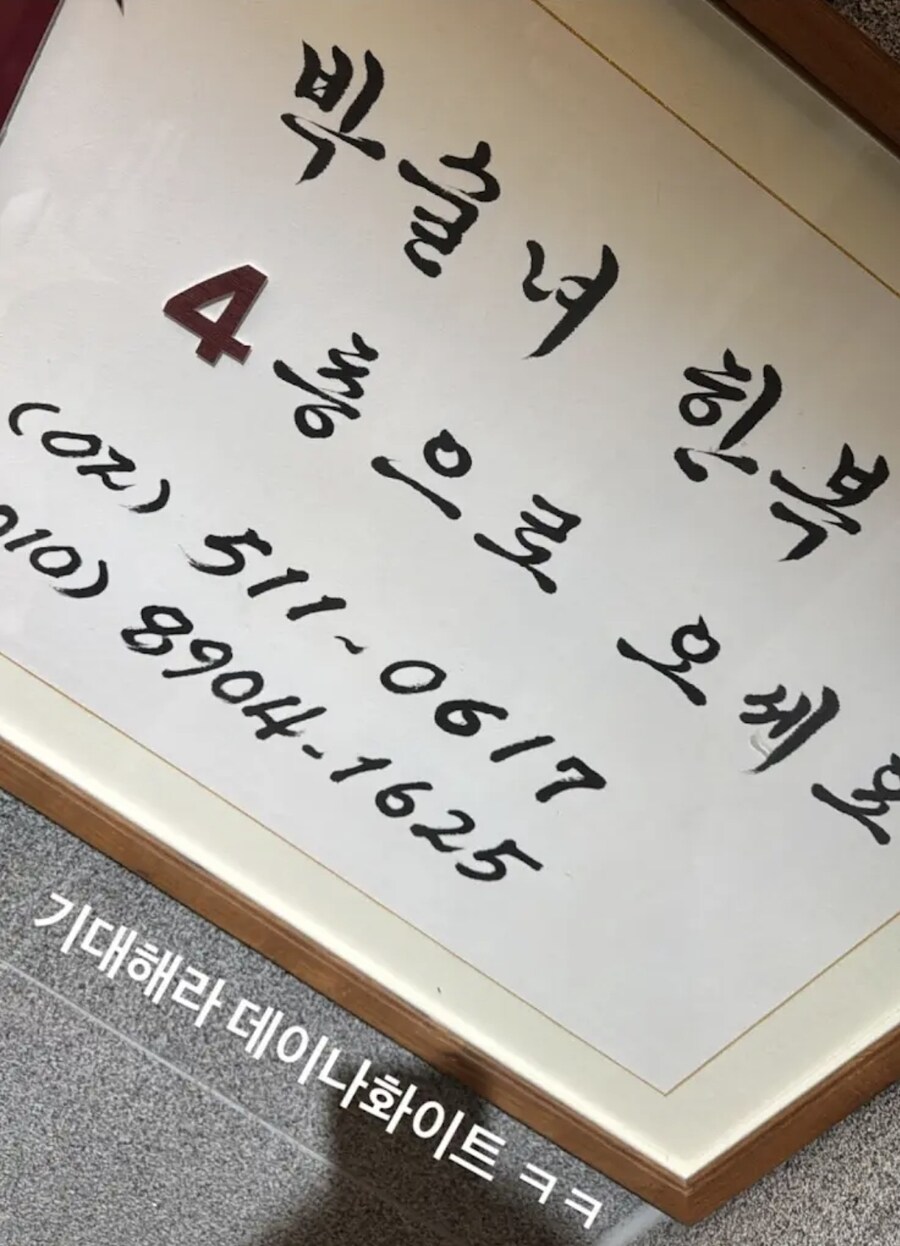 박술녀 한복
4 층으로 오세요
(02) 511-0617
010) 8904-1625
기대해라 데이나화이트 ㅋㅋ